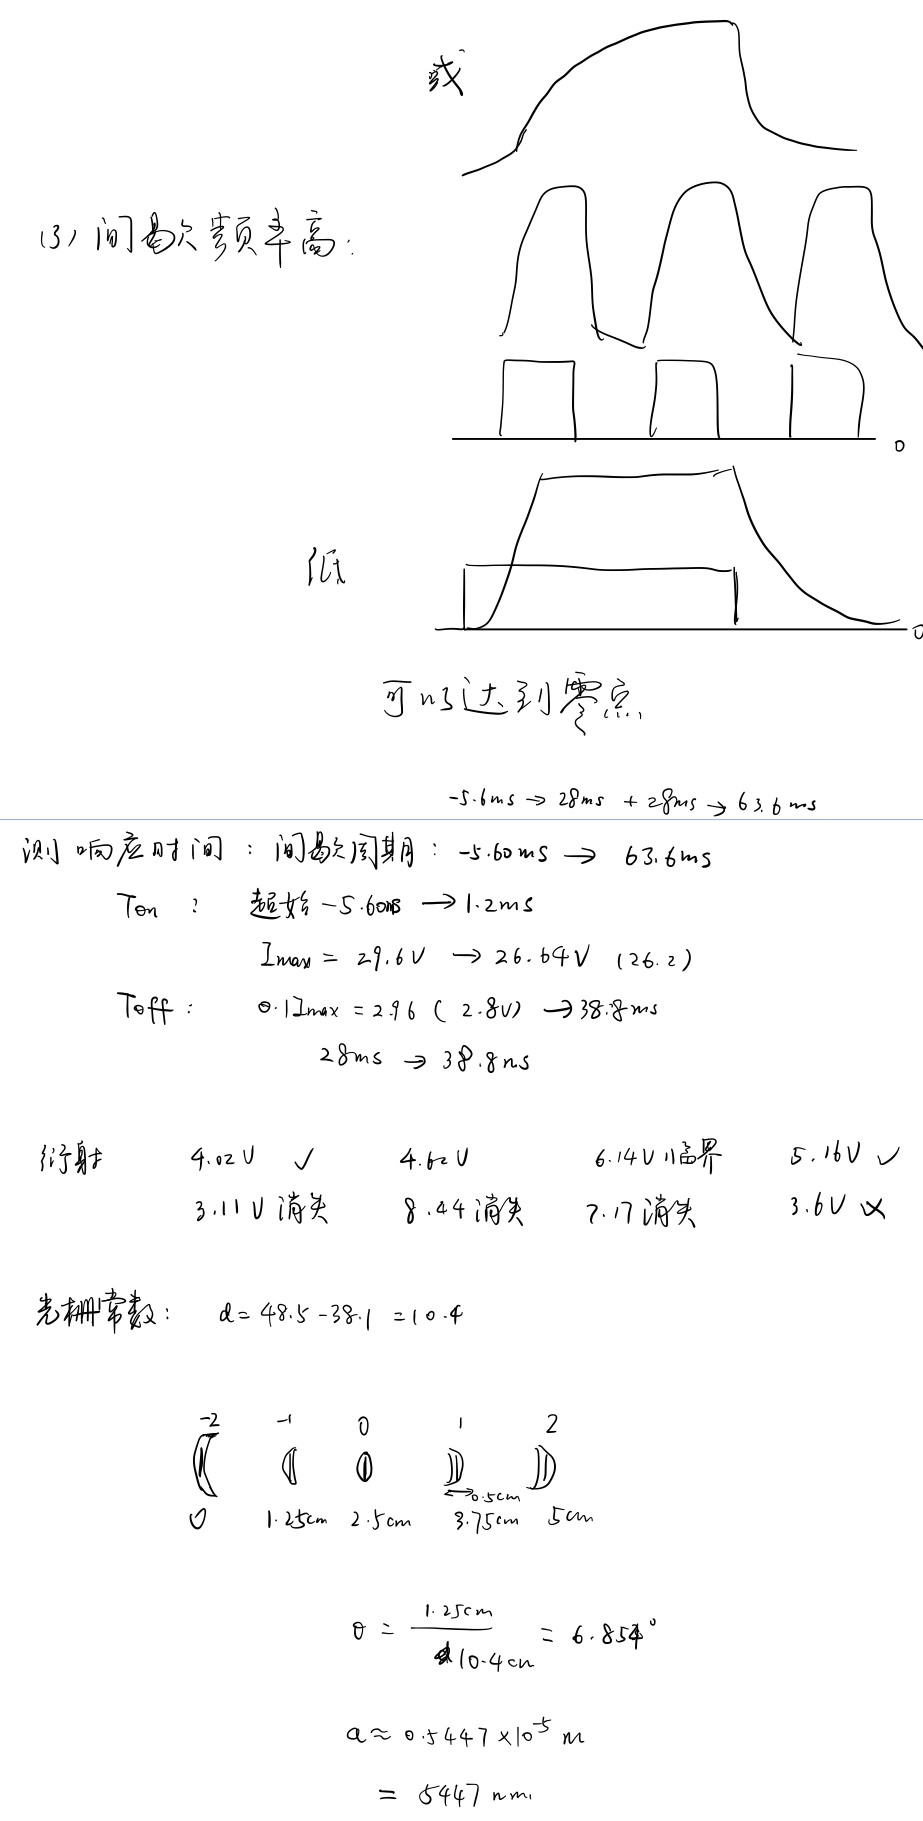 或
(3) 间歇频率高:
0
低
0
可以达到零点
-5.6ms → 28ms + 28ms → 63.6ms
测响应时间: 间歇周期: -5.60ms → 63.6ms
Ton: 起始 -5.60ms → 1.2ms
Imax = 29.6V → 26.64V (26.2)
Toff: 0.1Imax = 2.96 (2.8V) → 38.8ms
28ms → 38.8ms
衍射 4.02V ✓ 4.62V 6.14V 临界 5.16V ✓
3.11V 消失 8.44 消失 7.17 消失 3.6V ×
光栅常数: d = 48.5 - 38.1 = 10.4
-2 -1 0 1 2
0.5cm
0 1.25cm 2.5cm 3.75cm 5cm
θ = 1.25cm / 10.4cm = 6.854°
a ≈ 0.5447 × 10⁻⁵ m
= 5447 nm.